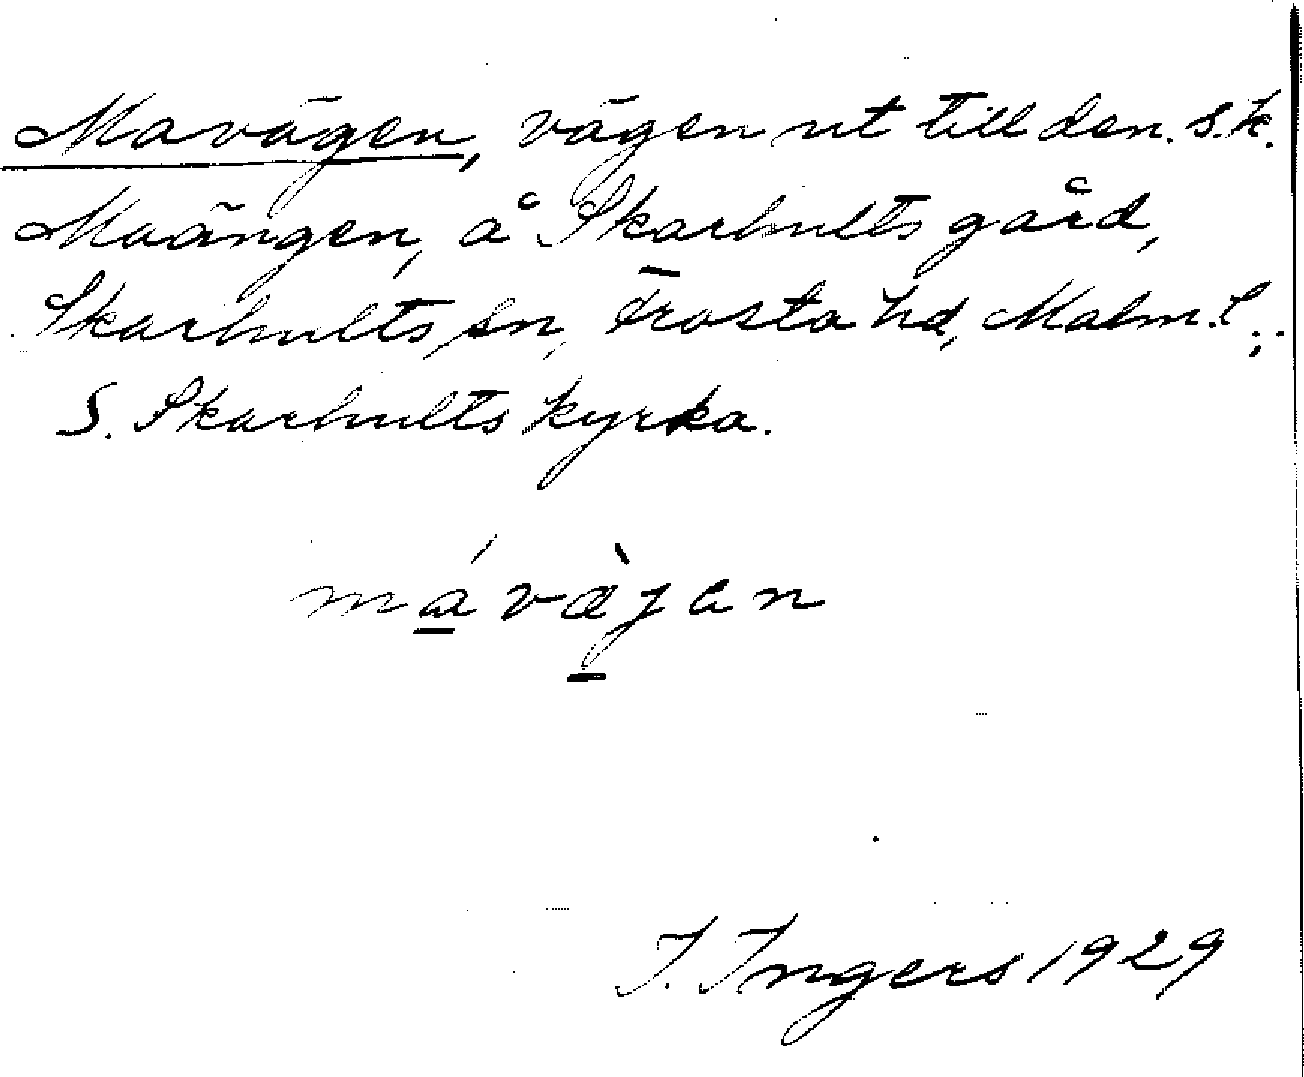 Mavägen, vägen ut till den s.k.
Maängen, å Skarhults gård,
Skarhults sn, Frosta hd, Malm.l.;
S. Skarhults kyrka.
mávæ̀jen
I. Ingers 1929